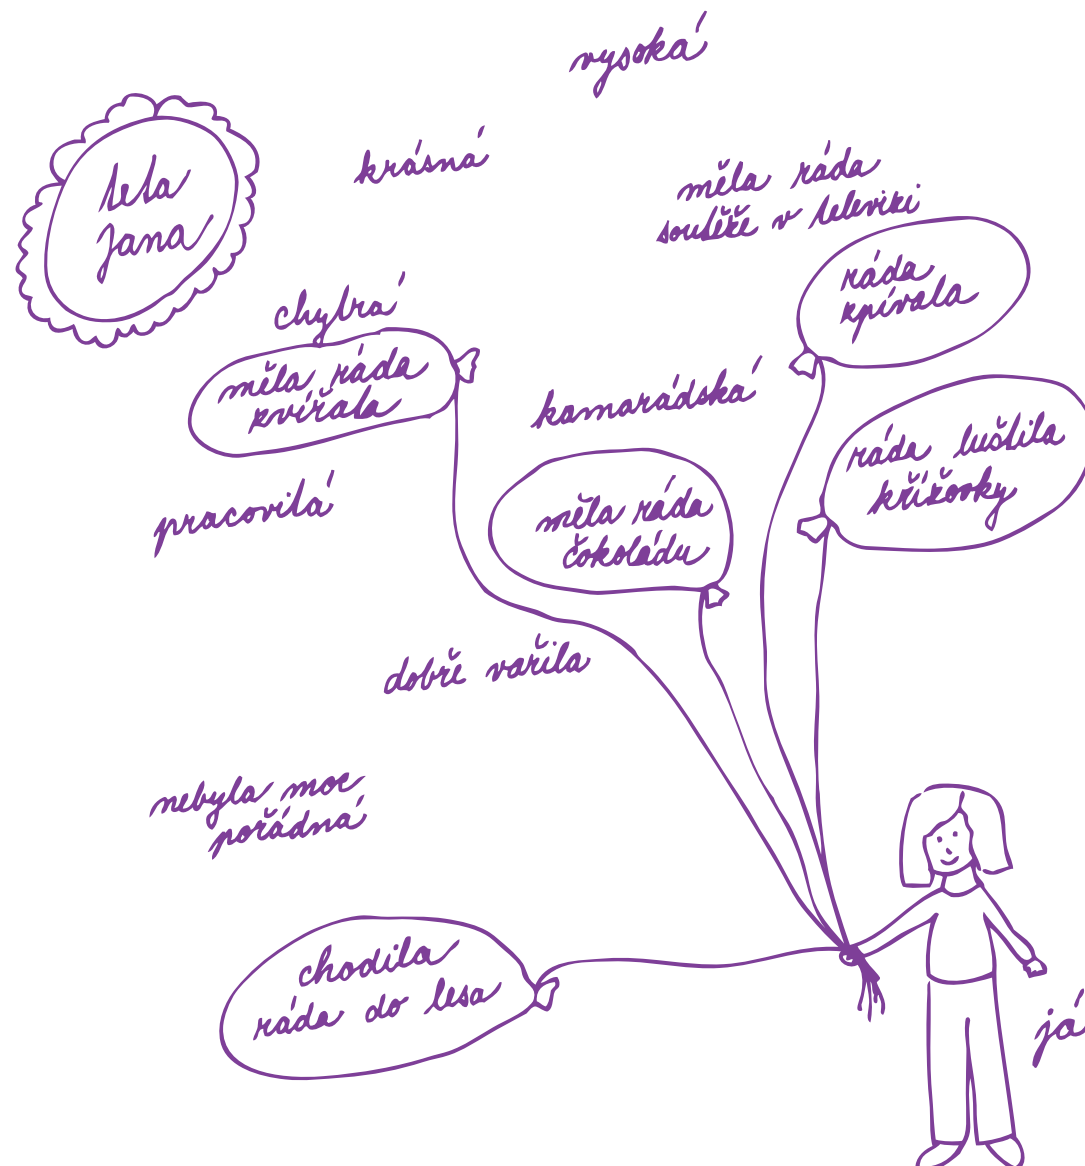 vysoká
teta
Jana
krásná
měla ráda
soutěže v televizi
ráda
zpívala
chytrá
měla ráda
zvířata
kamarádská
ráda luštila
křížovky
pracovitá
měla ráda
čokoládu
dobře vařila
nebyla moc
pořádná
chodila
ráda do lesa
já